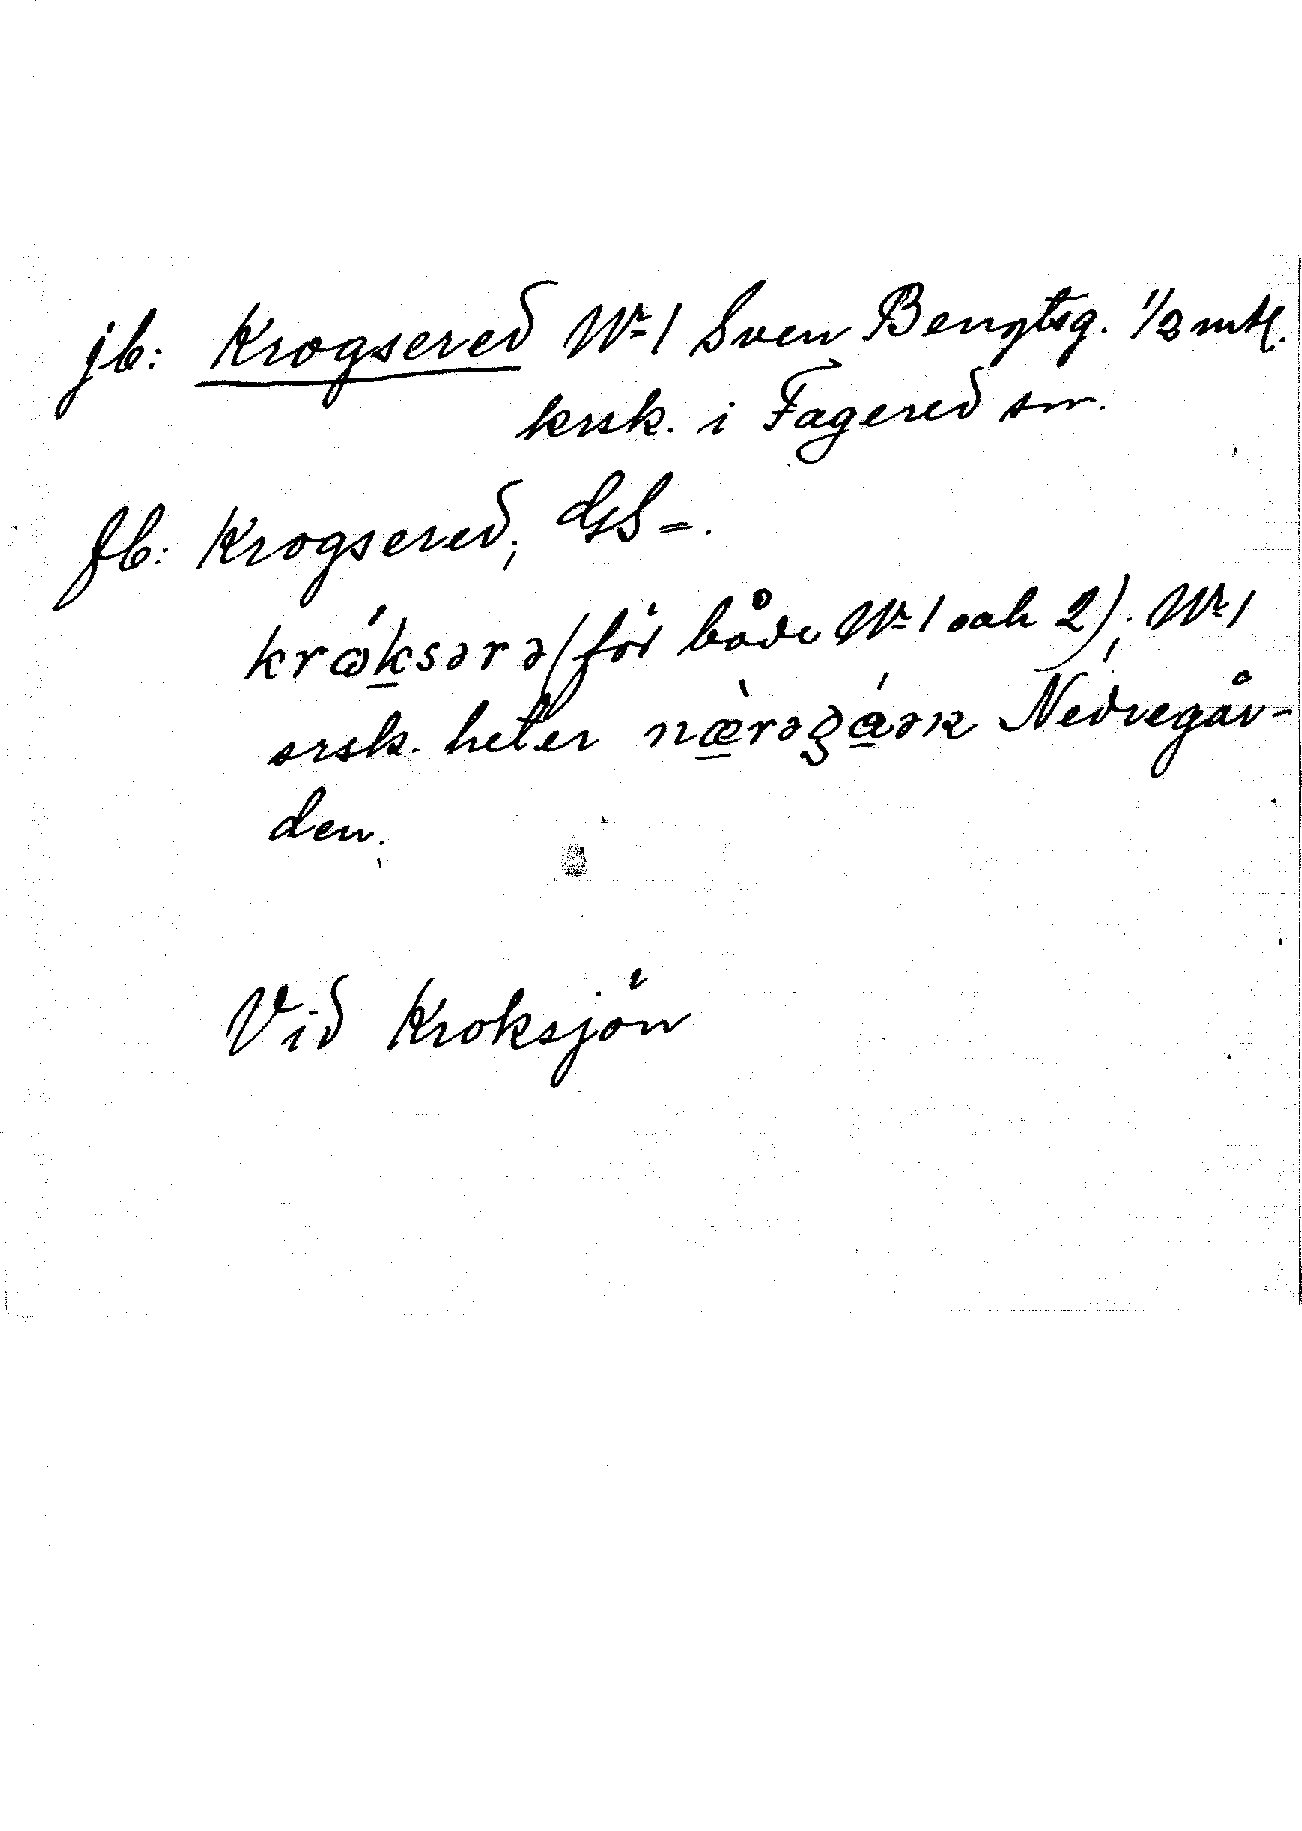 jb: Krogsered Nr 1 Sven Bengtsg. 1/2 mtl.
krsk. i Fagered sn.
fb: Krogsered; GS =.
krώksərə (för både Nr 1 och 2); Nr 1
srsk. heter næ̀rəgáəʀ Nedregår-
den.
Vid Kroksjön